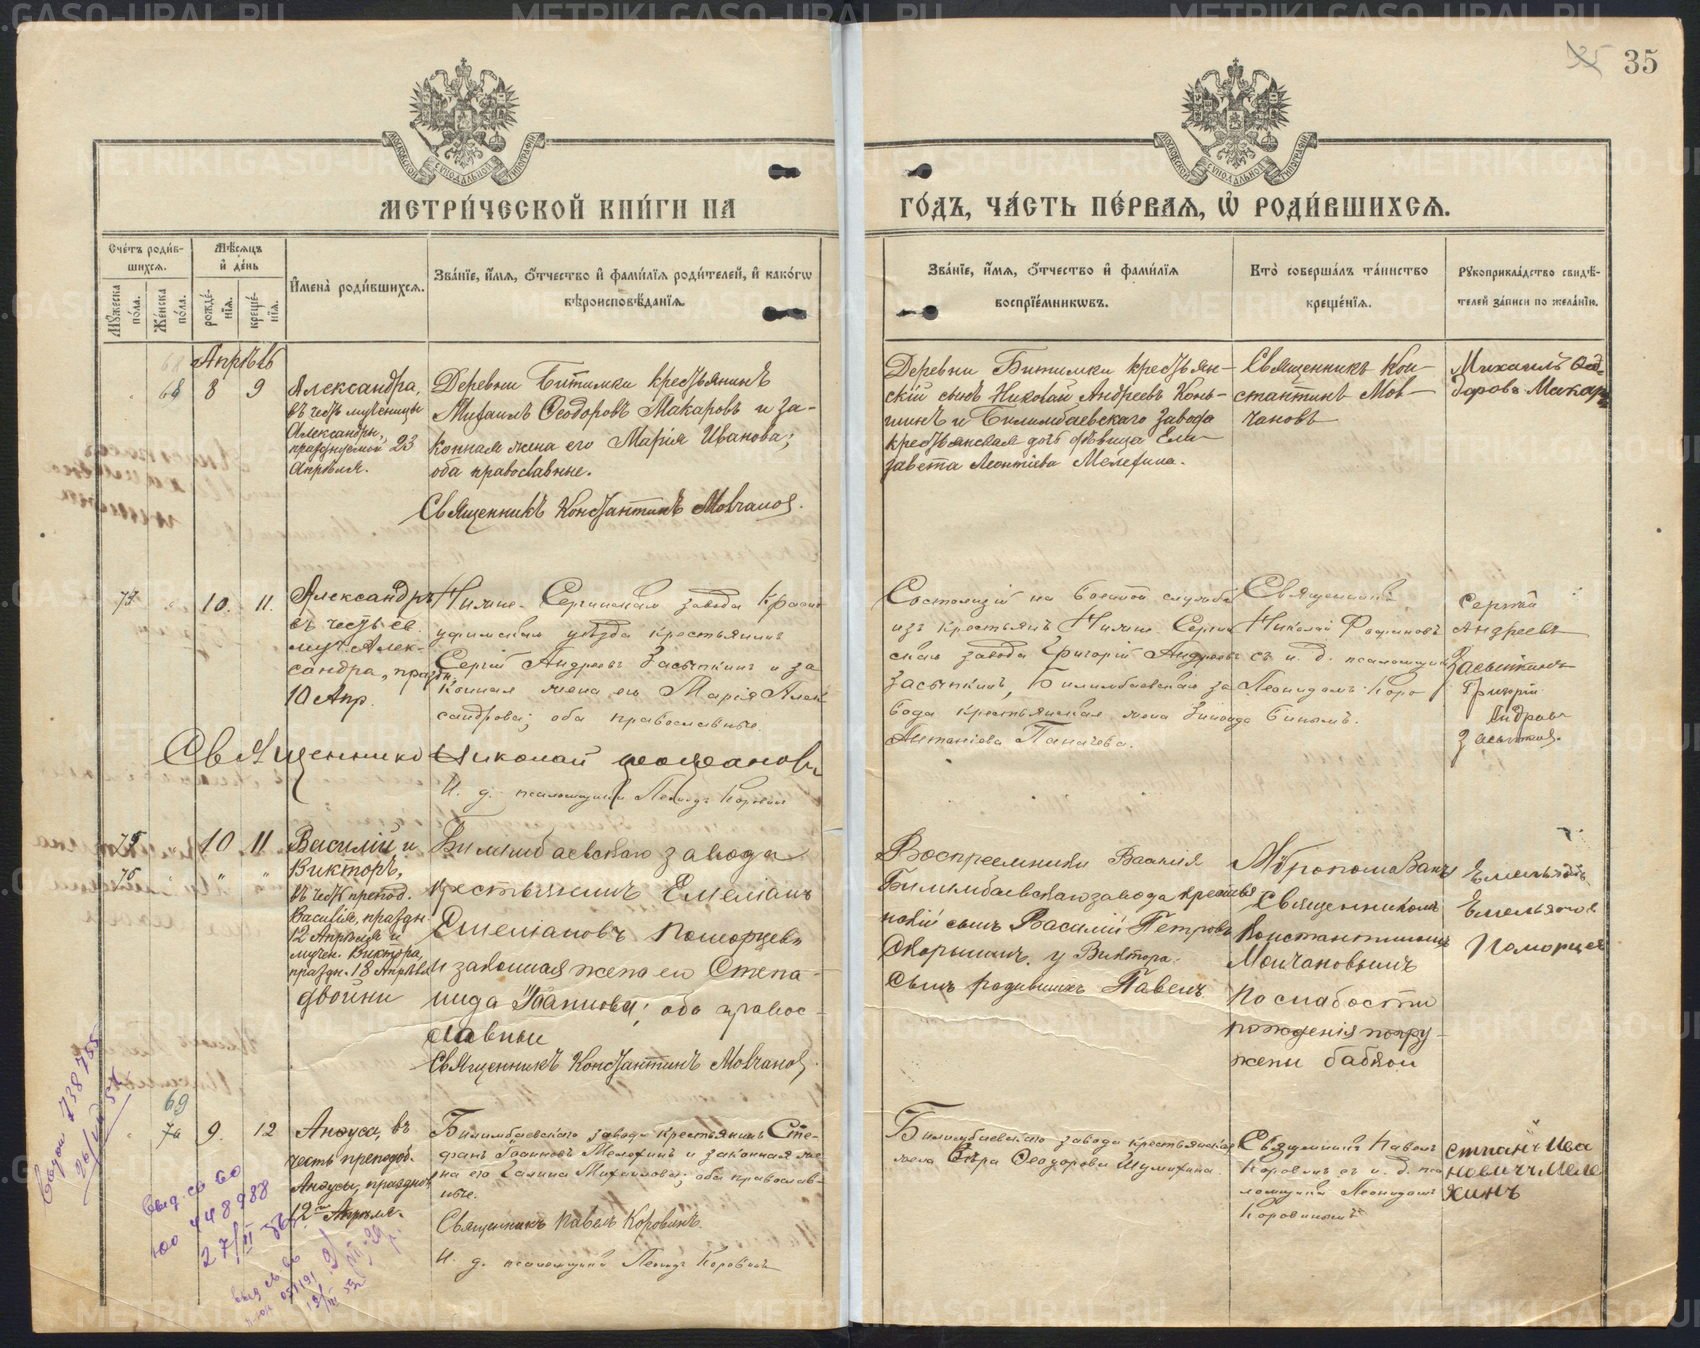 35
МЕТРИ́ЧЕСКОЙ КНИ́ГИ НА
ГО́ДЪ, ЧА́СТЬ ПЕ́РВАЯ, Ѡ҆ РОДИ́ВШИХСЯ.
Сче́тъ роди́в-
шихся.
Мѣ́сяцъ
и҆ де́нь
Мꙋ́жеска
по́ла.
Же́нска
по́ла.
рожде́-
нїя.
креще́-
нїя.
И҆мена̀ роди́вшихся.
Зва́нїе, и҆́мя, ѻ҆́тчество и҆ фами́лїя роди́телей, и҆ како́гѡ
вѣроисповѣ́данїя.
Зва́нїе, и҆́мя, ѻ҆́тчество и҆ фами́лїя
воспрїе́мникѡвъ.
Кто̀ соверша́лъ та́инство
креще́нїя.
Рꙋкоприкла́дство свидѣ́-
телей за́писи по жела́нїю.
Апрѣль
68 8 9
Александра,
въ честь мученицы
Александры,
празднуемой 23
Апрѣля.
Деревни Битимки крестьянинъ
Михаилъ Ѳеодоровъ Макаровъ и за-
конная жена его Марія Иванова;
оба православные.
Священникъ Константинъ Мовчанов.
Деревни Битимки крестьян-
скій сынъ Николай Андреевъ Конь-
шинъ и Билимбаевскаго завода
крестьянская дочь дѣвица Ели-
завета Леонтіева Мелехина.
Священникъ Кон-
стантинъ Мов-
чановъ
Михаилъ Ѳед
доровъ Макар
10. 11.
Александръ
въ честь св.
муч. Алек-
сандра, празд.
10 Апр.
Нижне-Сергинскаго завода Красно
уфимскаго уѣзда крестьянинъ
Сергій Андреевъ Засыпкинъ и за
конная жена его Марія Алек
сандрова; оба православные.
Священникъ Николай
И. д. псаломщика Леонидъ Коровин
Состоящій на военной службѣ
изъ крестьянъ Нижне Сергин
скаго завода Григорій Андреевъ
Засыпкинъ, Билимбаевскаго за
вода крестьянская жена Зинаида
Антоніева Паначева.
Священникъ
Николай
съ и. д. псаломщика
Леонидомъ Коро
винымъ.
Сергѣй
Андреевъ
Засыпкинъ
Григорій
Андреев
Засыпкин.
75 10 11
76 " "
Василій и
Викторъ,
въ честь препод.
Василія, праздн.
12 Апрѣля и
мучен. Виктора,
праздн. 18 Апрѣля
двойни
Билимбаевскаго завода
крестьянинъ Емеліанъ
Емеліановъ Поморцевъ
и законная жена его Степа-
нида Іоаннова; оба правос-
лавные
Священникъ Константинъ Мовчанов.
Воспреемники Василія
Билимбаевскаго завода крестья
нскій сынъ Василій Петровъ
Скорынинъ. у Виктора
сынъ родившихъ Павелъ.
Мѵропомазаны
Священникомъ
Константиномъ
Молчановымъ
По слабости
рожденія погру-
жены бабкой
Емельянъ
Емельянов
Поморцев
69
9. 12
Анѳуса, въ
честь преподоб.
Анѳусы, празднов.
12го Апрѣля.
Билимбаевскаго завода крестьянинъ Сте-
фанъ Іоанновъ Мелехинъ и законная же
на его Галина Михаилова; оба православ-
ные.
Священникъ Павелъ Коровинъ.
И. д. псаломщика Леонидъ Коровинъ
Билимбаевскаго завода крестьянская
жена Вѣра Ѳеодорова Шумихина.
Священникъ Павелъ
Коровинъ съ и. д. пса
ломщика Леонидомъ
Коровинымъ
Стпанъ Ива
новичъ Меле
хинъ
Выд. св во
ЮО 448988
27/II
METRIKI.GASO-URAL.RU